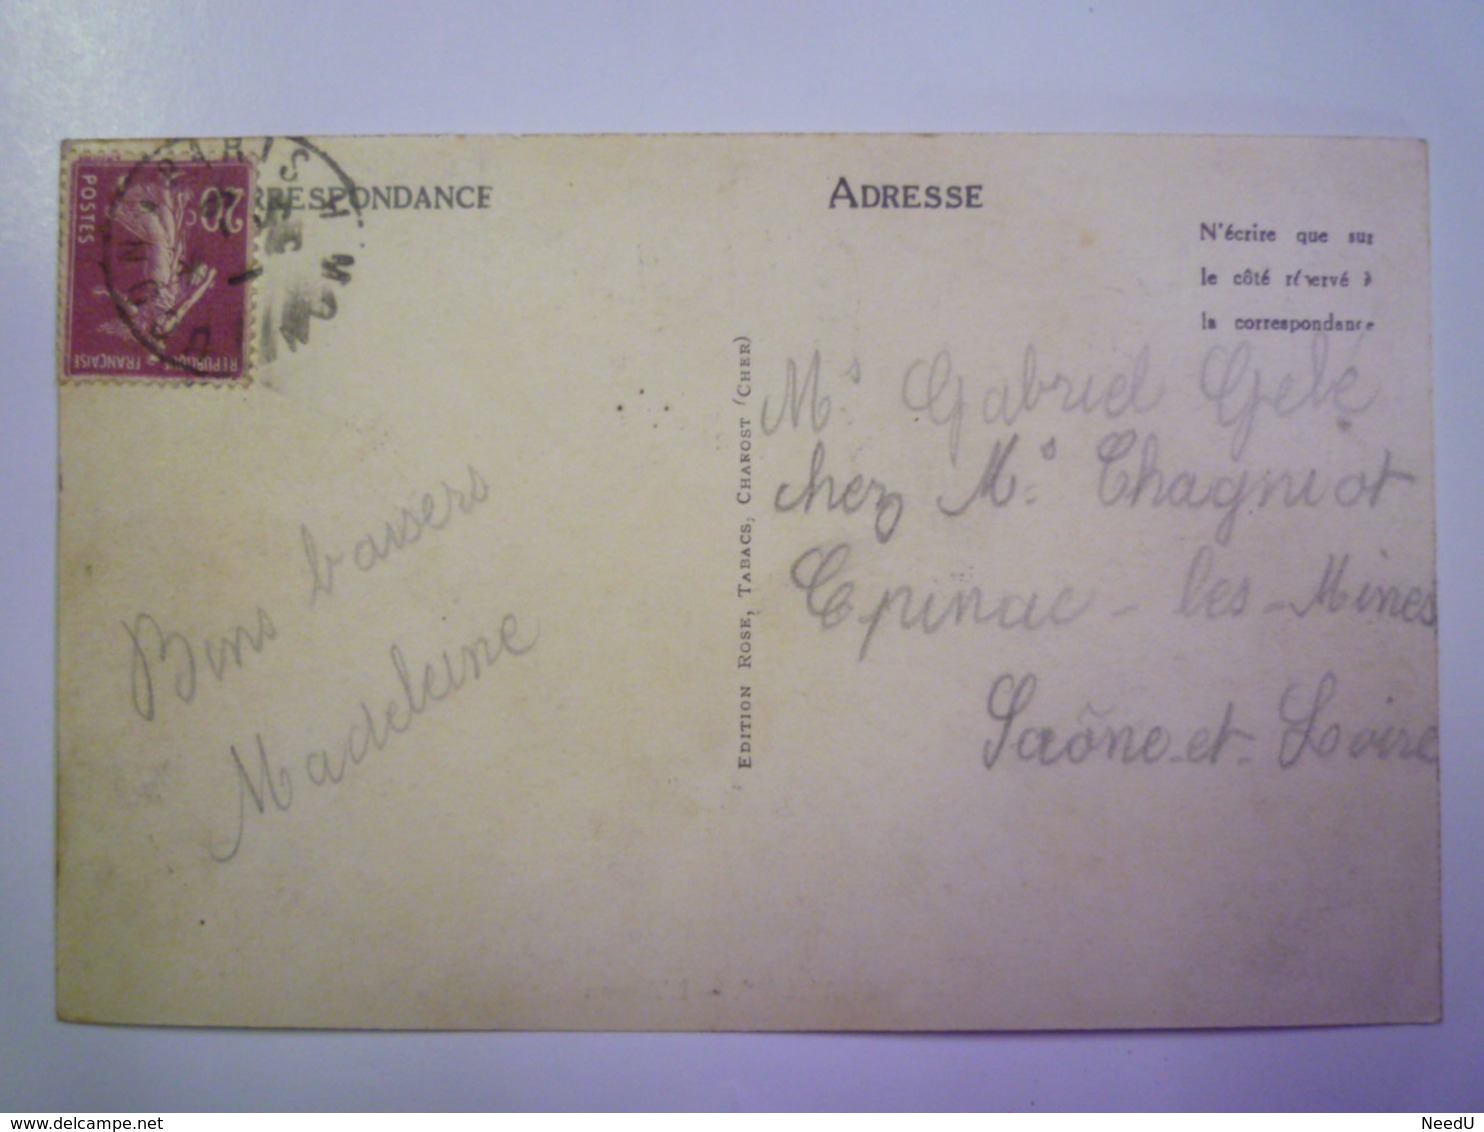 CORRESPONDANCE
ADRESSE
N'écrire que sur
le côté réservé à
la correspondance
20c
POSTES
REPUBLIQUE FRANÇAISE
PARIS
EDITION ROSE, TABACS, CHAROST (CHER)
Ms. Gabriel Gelé
chez Ms. Chagniot
Epinac-les-Mines
Saône-et-Loire
Bons baisers
Madeleine
NeedU